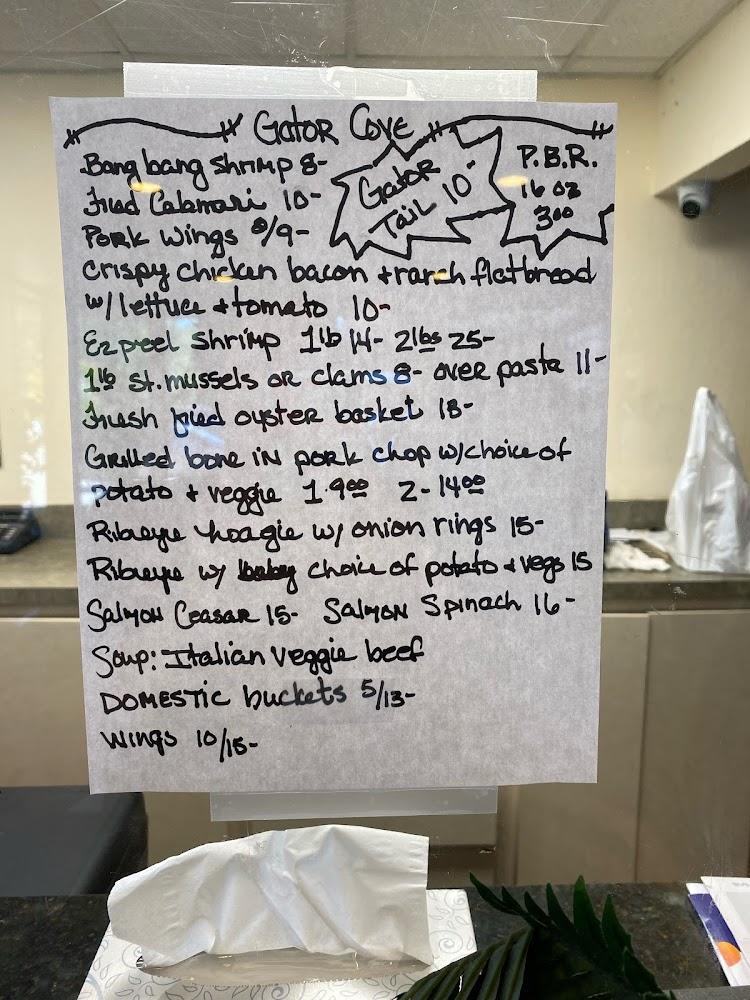 Gator Cove
Bang bang shrimp 8-
Fried Calamari 10-
Gator
Tail 10-
P.B.R.
16 oz
3.00
Pork Wings 8/9-
Crispy chicken bacon + ranch flatbread
w/ lettuce + tomato 10-
Ez peel shrimp 1lb 14- 2lbs 25-
1lb st. mussels or clams 8- over pasta 11-
Fresh fried oyster basket 18-
Grilled bone in pork chop w/ choice of
potato + veggie 1-9.00 2-14.00
Ribeye hoagie w/ onion rings 15-
Ribeye w/ choice of potato + vegs 15
Salmon Ceasar 15- Salmon Spinach 16-
Soup: Italian veggie beef
DOMESTIC buckets 5/13-
Wings 10/15-